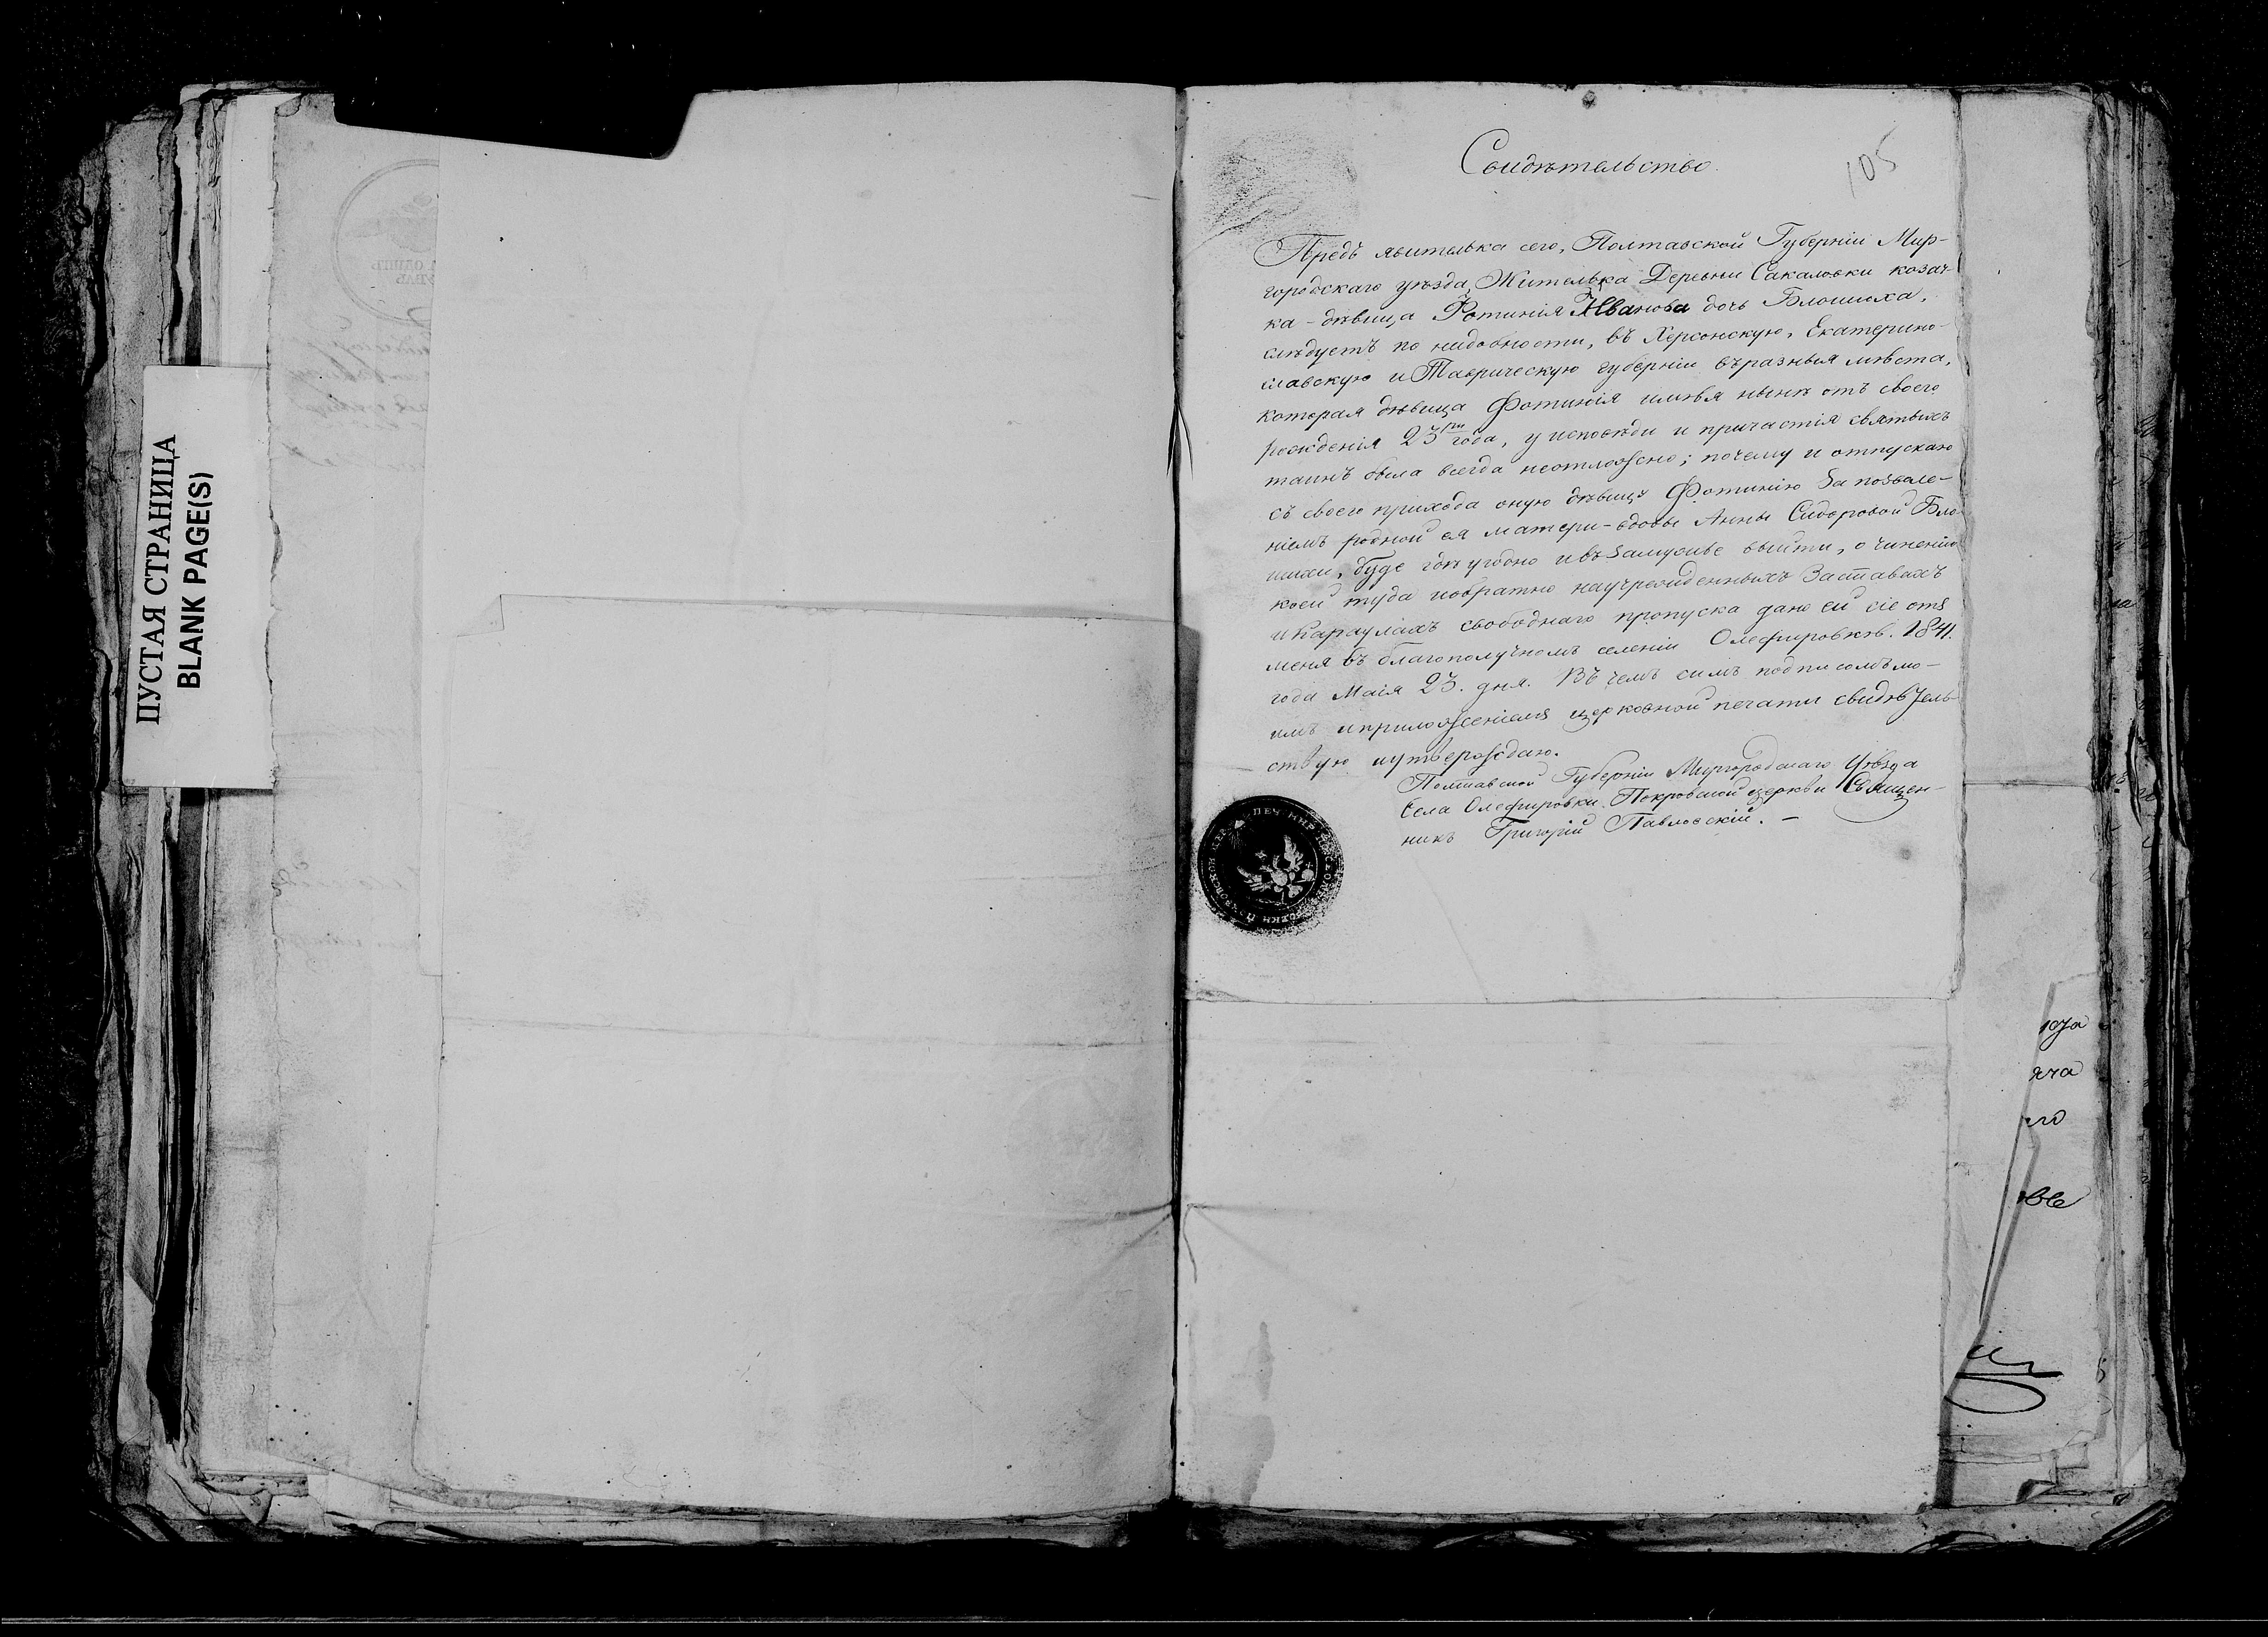 ПУСТАЯ СТРАНИЦА
BLANK PAGE(S)
Свидѣтельство.
105
Предъ явителька сего, Полтавской Губерніи Мир-
городскаго уѣзда, Жителька Деревни Сакаловки козач-
ка - дѣвица Фотинія Иванова дочь Блошиха,
слѣдуетъ по надобности, въ Херсонскую, Екатерино-
славскую и Таврическую губерніи въ разныя мѣста,
которая дѣвица Фотинія имѣя нынѣ отъ своего
рожденія 23 ри года, у исповѣди и причастія святыхъ
таинъ была всегда неотложно; почему и отпускаю
съ своего прихода оную дѣвицу Фотинію за позволе-
ніемъ родной ея матери - вдовы Анны Сидоровой Бло-
шихи, буде гдѣ угодно и въ замужье выйти, о чиненіи
коей туда и обратно на учрежденныхъ Заставахъ
и Караулахъ свободнаго пропуска дано ей сіе отъ
меня въ благополучномъ селеніи Олефировкѣ. 1841.
года Маія 23. дня. Въ чемъ симъ подписомъ мо-
имъ и приложеніемъ церковной печати свидѣтель-
ствую и утверождаю.
Полтавской Губерніи Миргородскаго Уѣзда
Села Олефировки Покровской церкви Священ-
никъ Григорій Павловскій. -